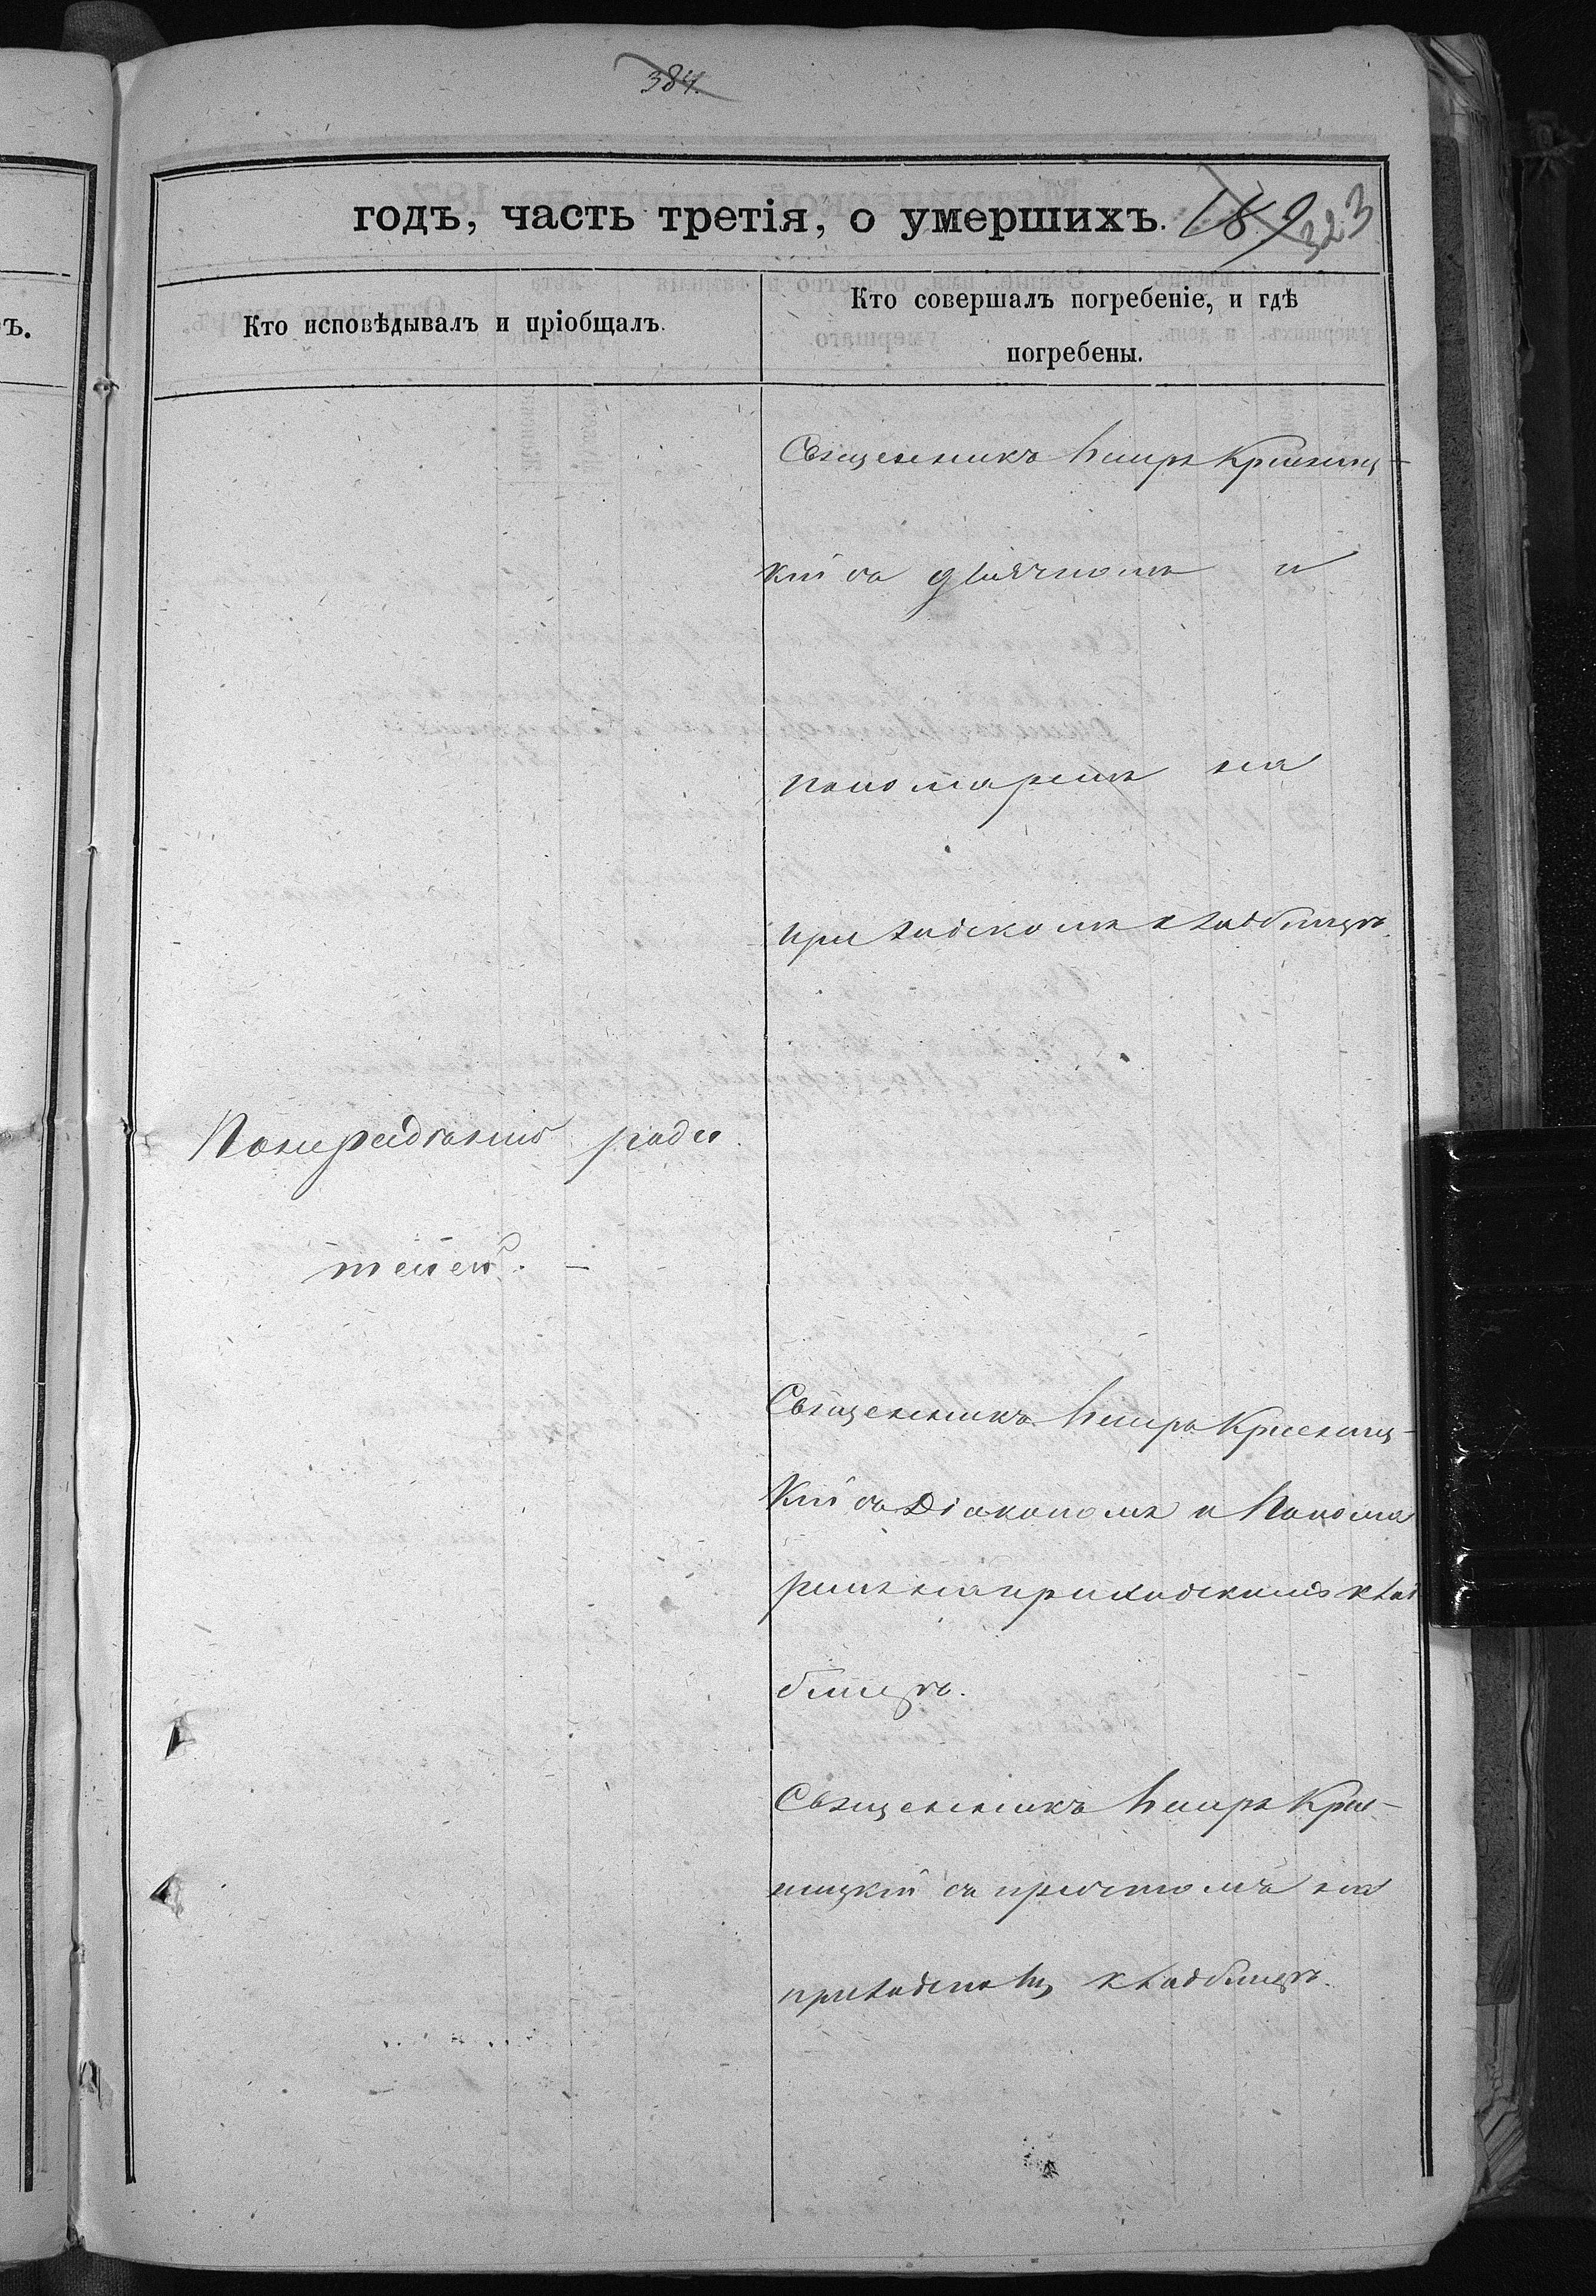 384.
годъ, часть третія, о умершихъ. 189 323
ъ.
Кто исповѣдывалъ и пріобщалъ.
Кто совершалъ погребеніе, и гдѣ
погребены.
Священникъ Петръ Криниц-
кій съ діячкомъ и
пономаремъ на
приходскомъ кладбищѣ.
По нерадѣнію роди
телей. –
Священникъ Петръ Криниц-
кій съ Діакономъ и Понома
ремъ на приходскомъ клад
бищѣ.
Священникъ Петръ Кри-
ницкій съ причтомъ на
приходскомъ кладбищѣ.